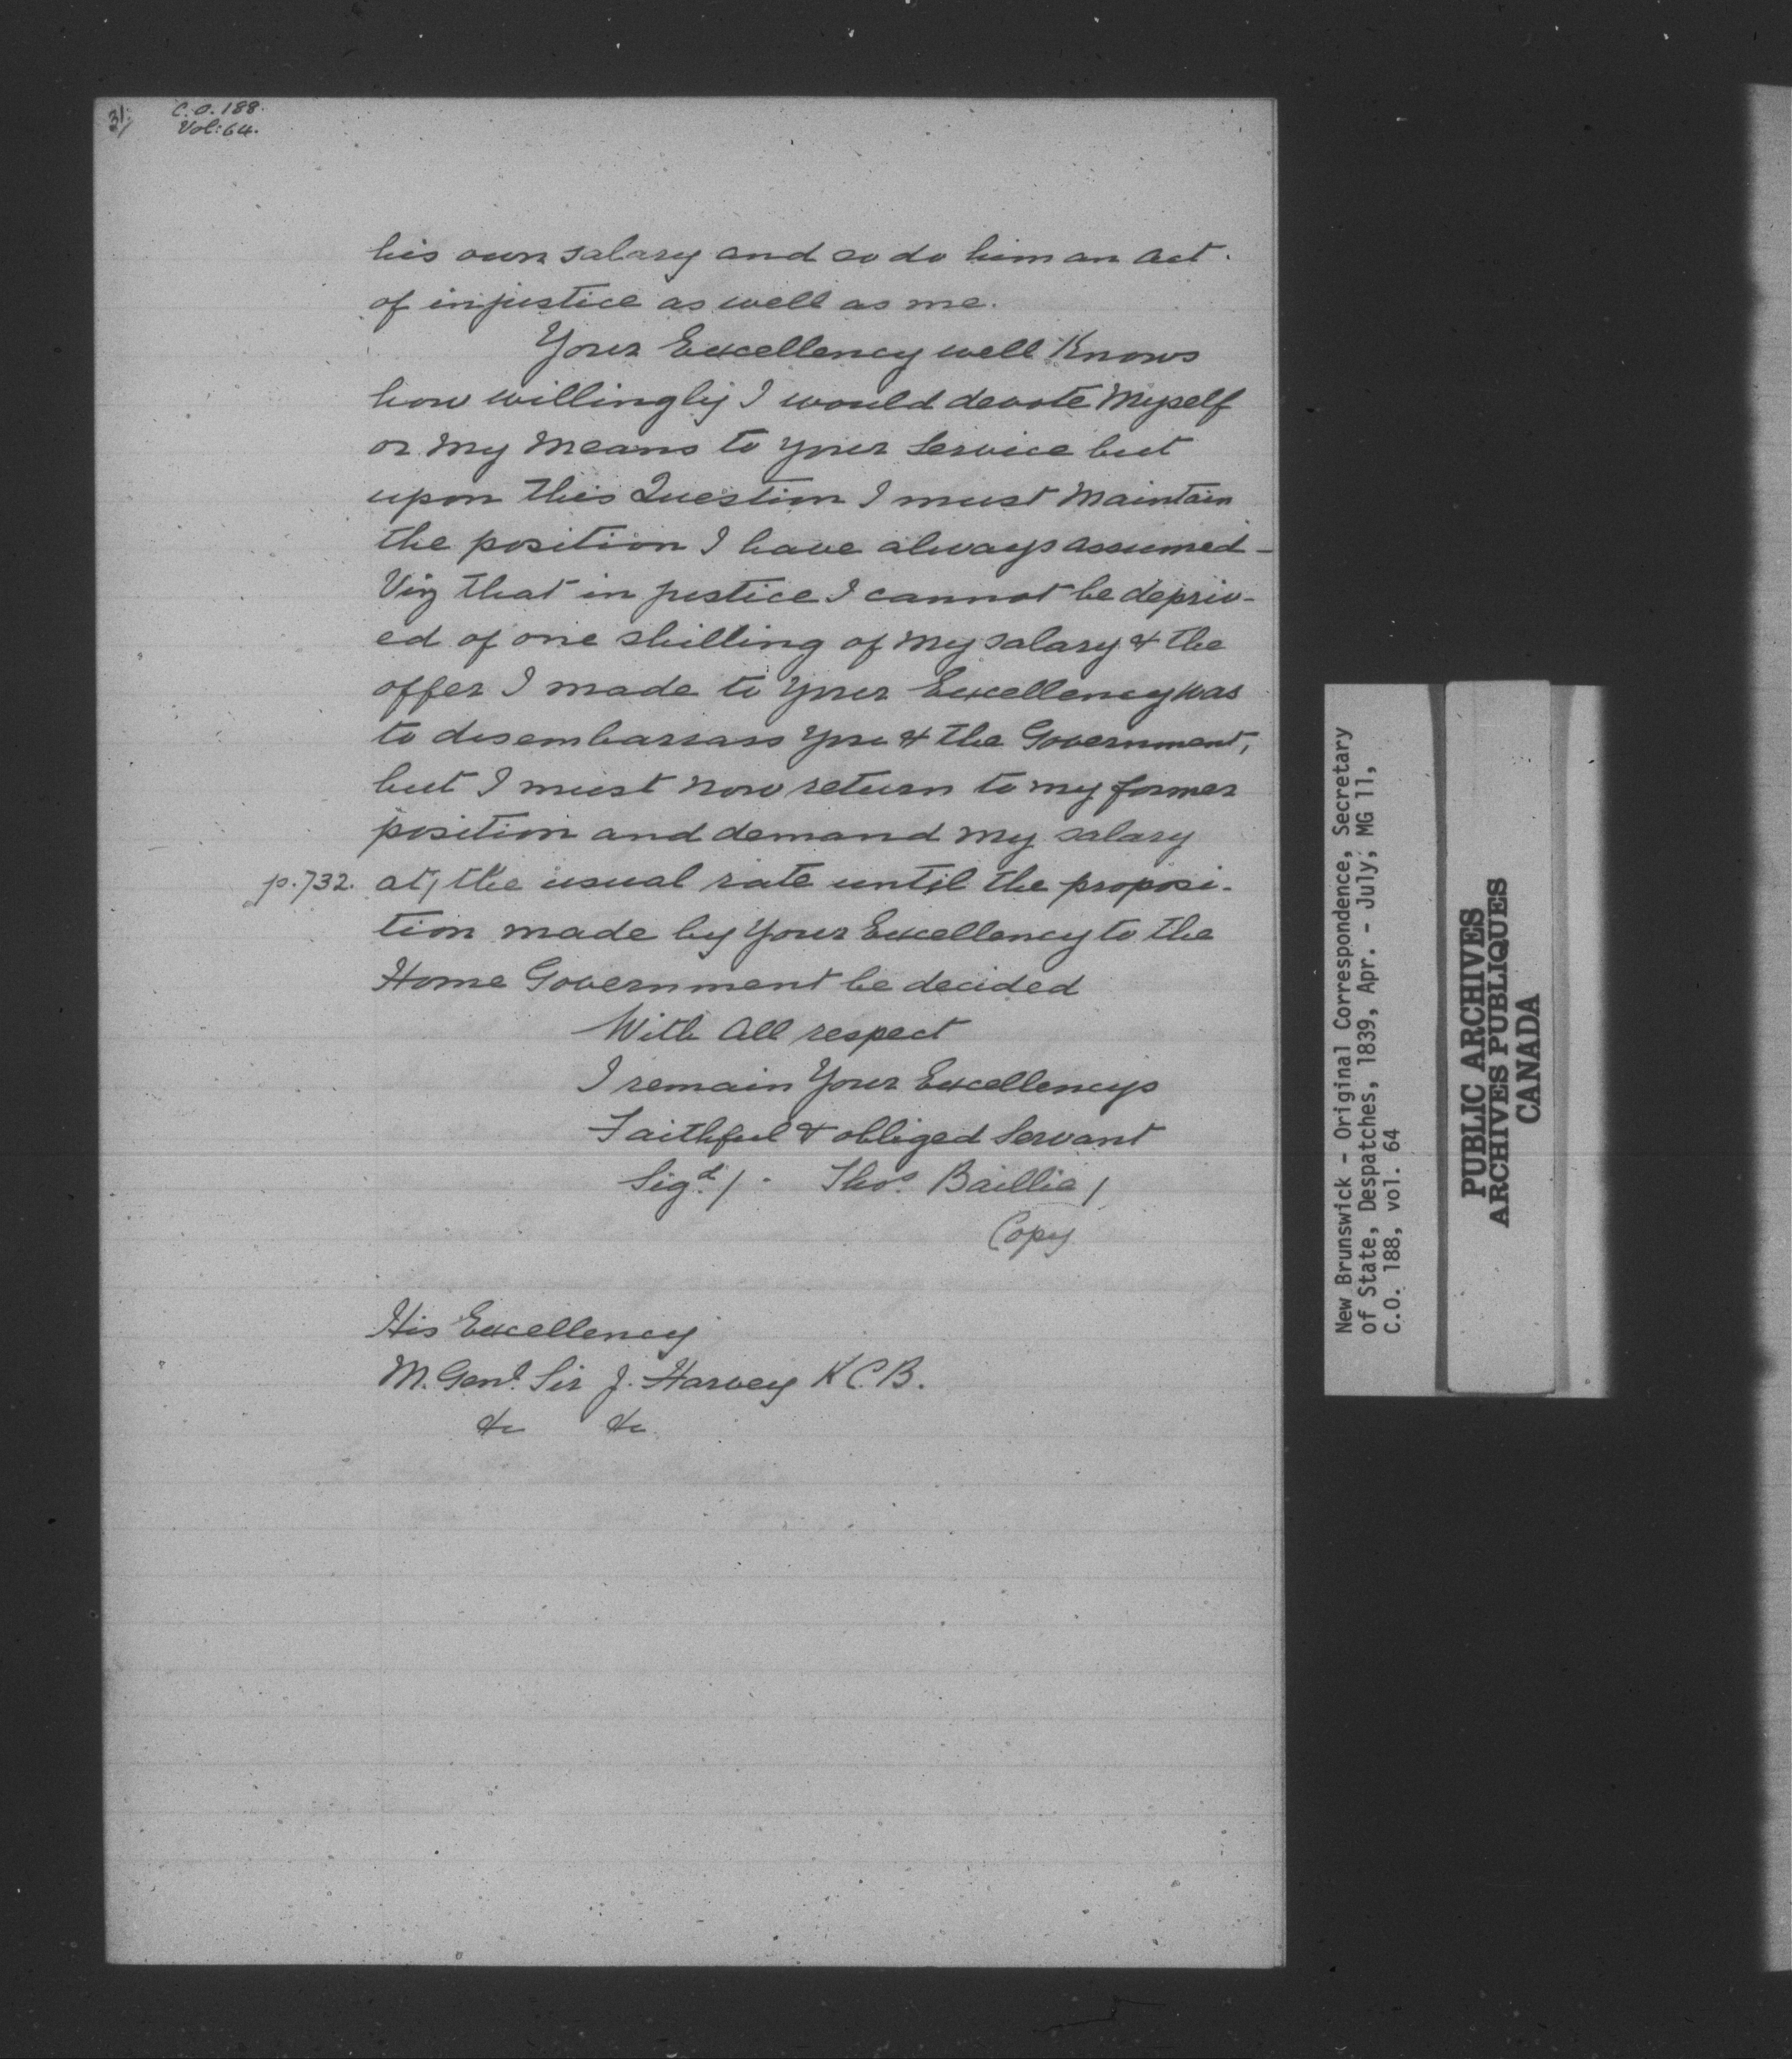 31.
C.O. 188.
Vol: 64.
his own salary and so do him an act.
of injustice as well as me.
Your Excellency well Knows
how willingly I would devote Myself
or My Means to your Service but
upon this Question I must Maintain
the position I have always assumed –
Viz that in justice I cannot be depriv-
ed of one shilling of My salary & the
offer I made to Your Excellency was
to disembarrass you & the Government,
but I must now return to my former
position and demand my salary
p. 732. at/ the usual rate until the proposi-
tion made by Your Excellency to the
Home Government be decided
With All respect
I remain Your Excellencys
Faithful & obliged Servant
Sigd. /. Thos. Baillie /
Copy
His Excellency
M. Genl. Sir J. Harvey K.C.B.
&c &c
New Brunswick - Original Correspondence, Secretary
of State, Despatches, 1839, Apr. - July; MG 11,
C.O. 188, vol. 64
PUBLIC ARCHIVES
ARCHIVES PUBLIQUES
CANADA